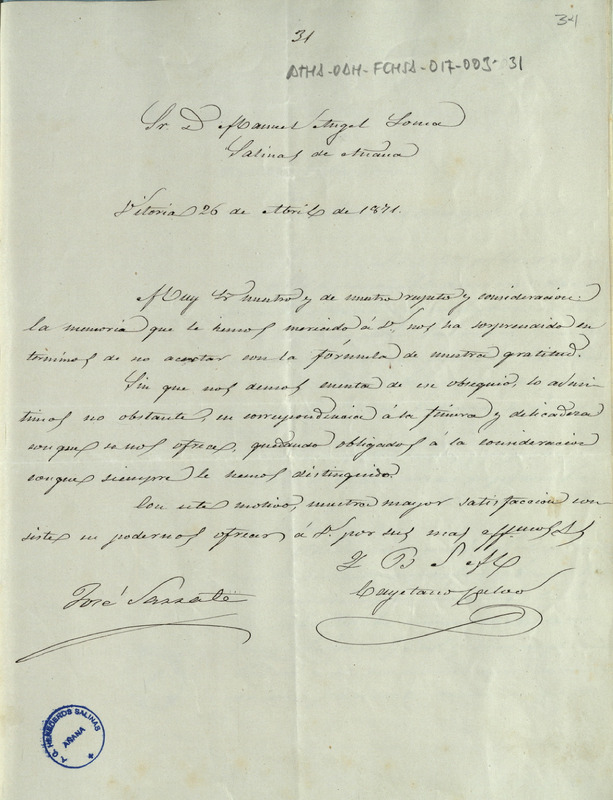 34
31
ATHA-DAH-FCHSA-017-003-31
Sr. D. Manuel Angel
Salinas de Añana
Vitoria 26 de Abril de 1871.
Muy Sr nuestro y de nuestro respeto y consideracion:
la memoria que le hemos merecido á V. nos ha sorprendido en
términos de no acertar con la fórmula de nuestra gratitud.
Sin que nos demos cuenta de ese obsequio, lo admi-
timos no obstante, en correspondencia á la finura y delicadeza
conque se nos ofrece, quedando obligados a la consideracion
conque siempre le hemos distinguido.
Con este motivo, nuestra mayor satisfaccion con-
siste en podernos ofrecer á V. por sus mas affmos SS
Q B S M
José
Cayetano Calvo
T. Q. HEREDEROS SALINAS
AÑANA